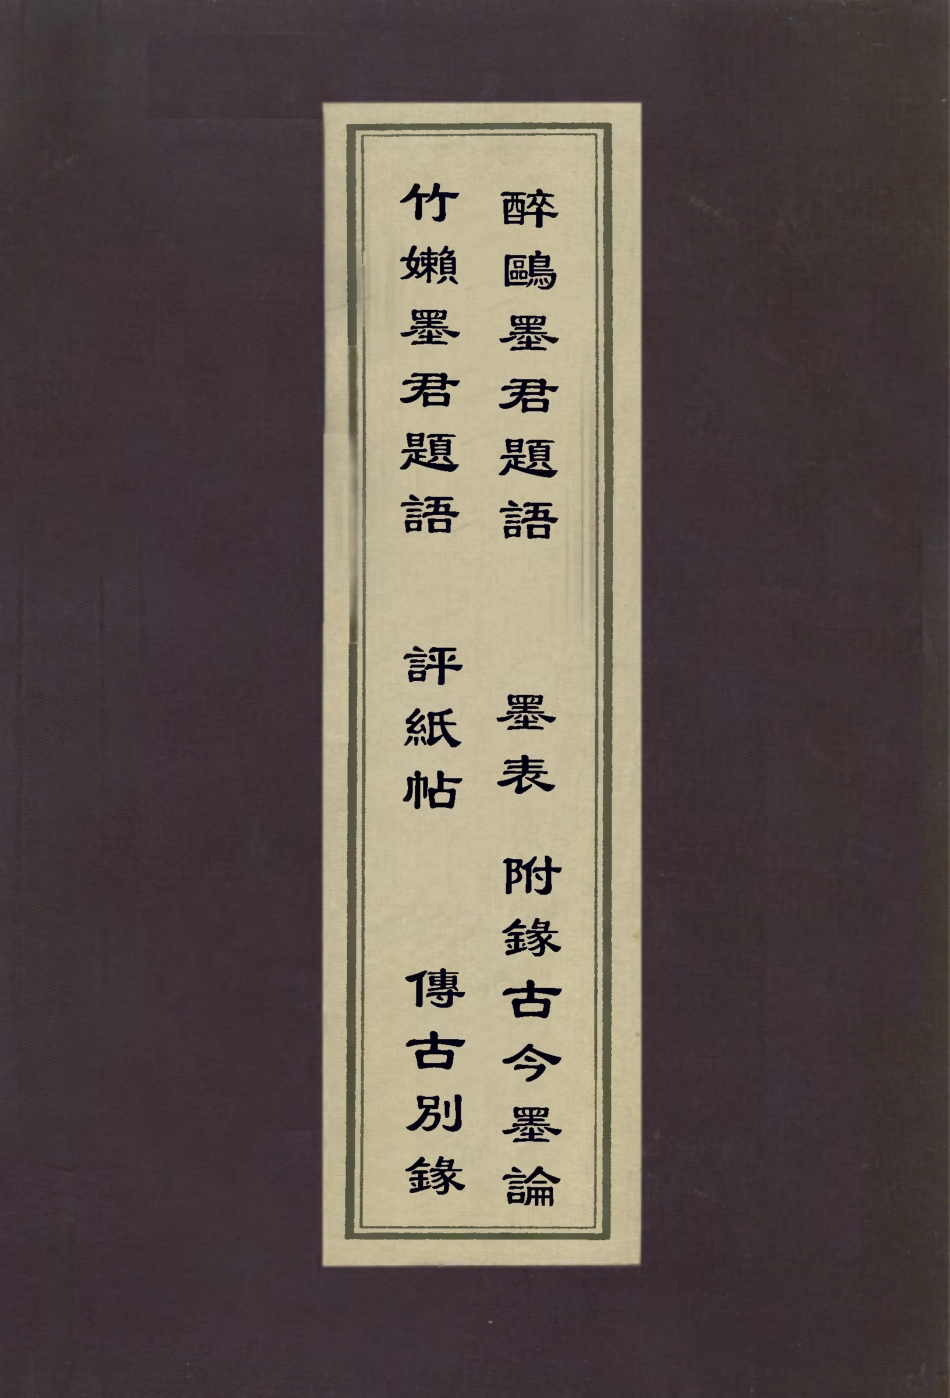 醉鷗墨君題語 墨表 附錄古今墨論
竹嬾墨君題語 評紙帖 傳古別錄